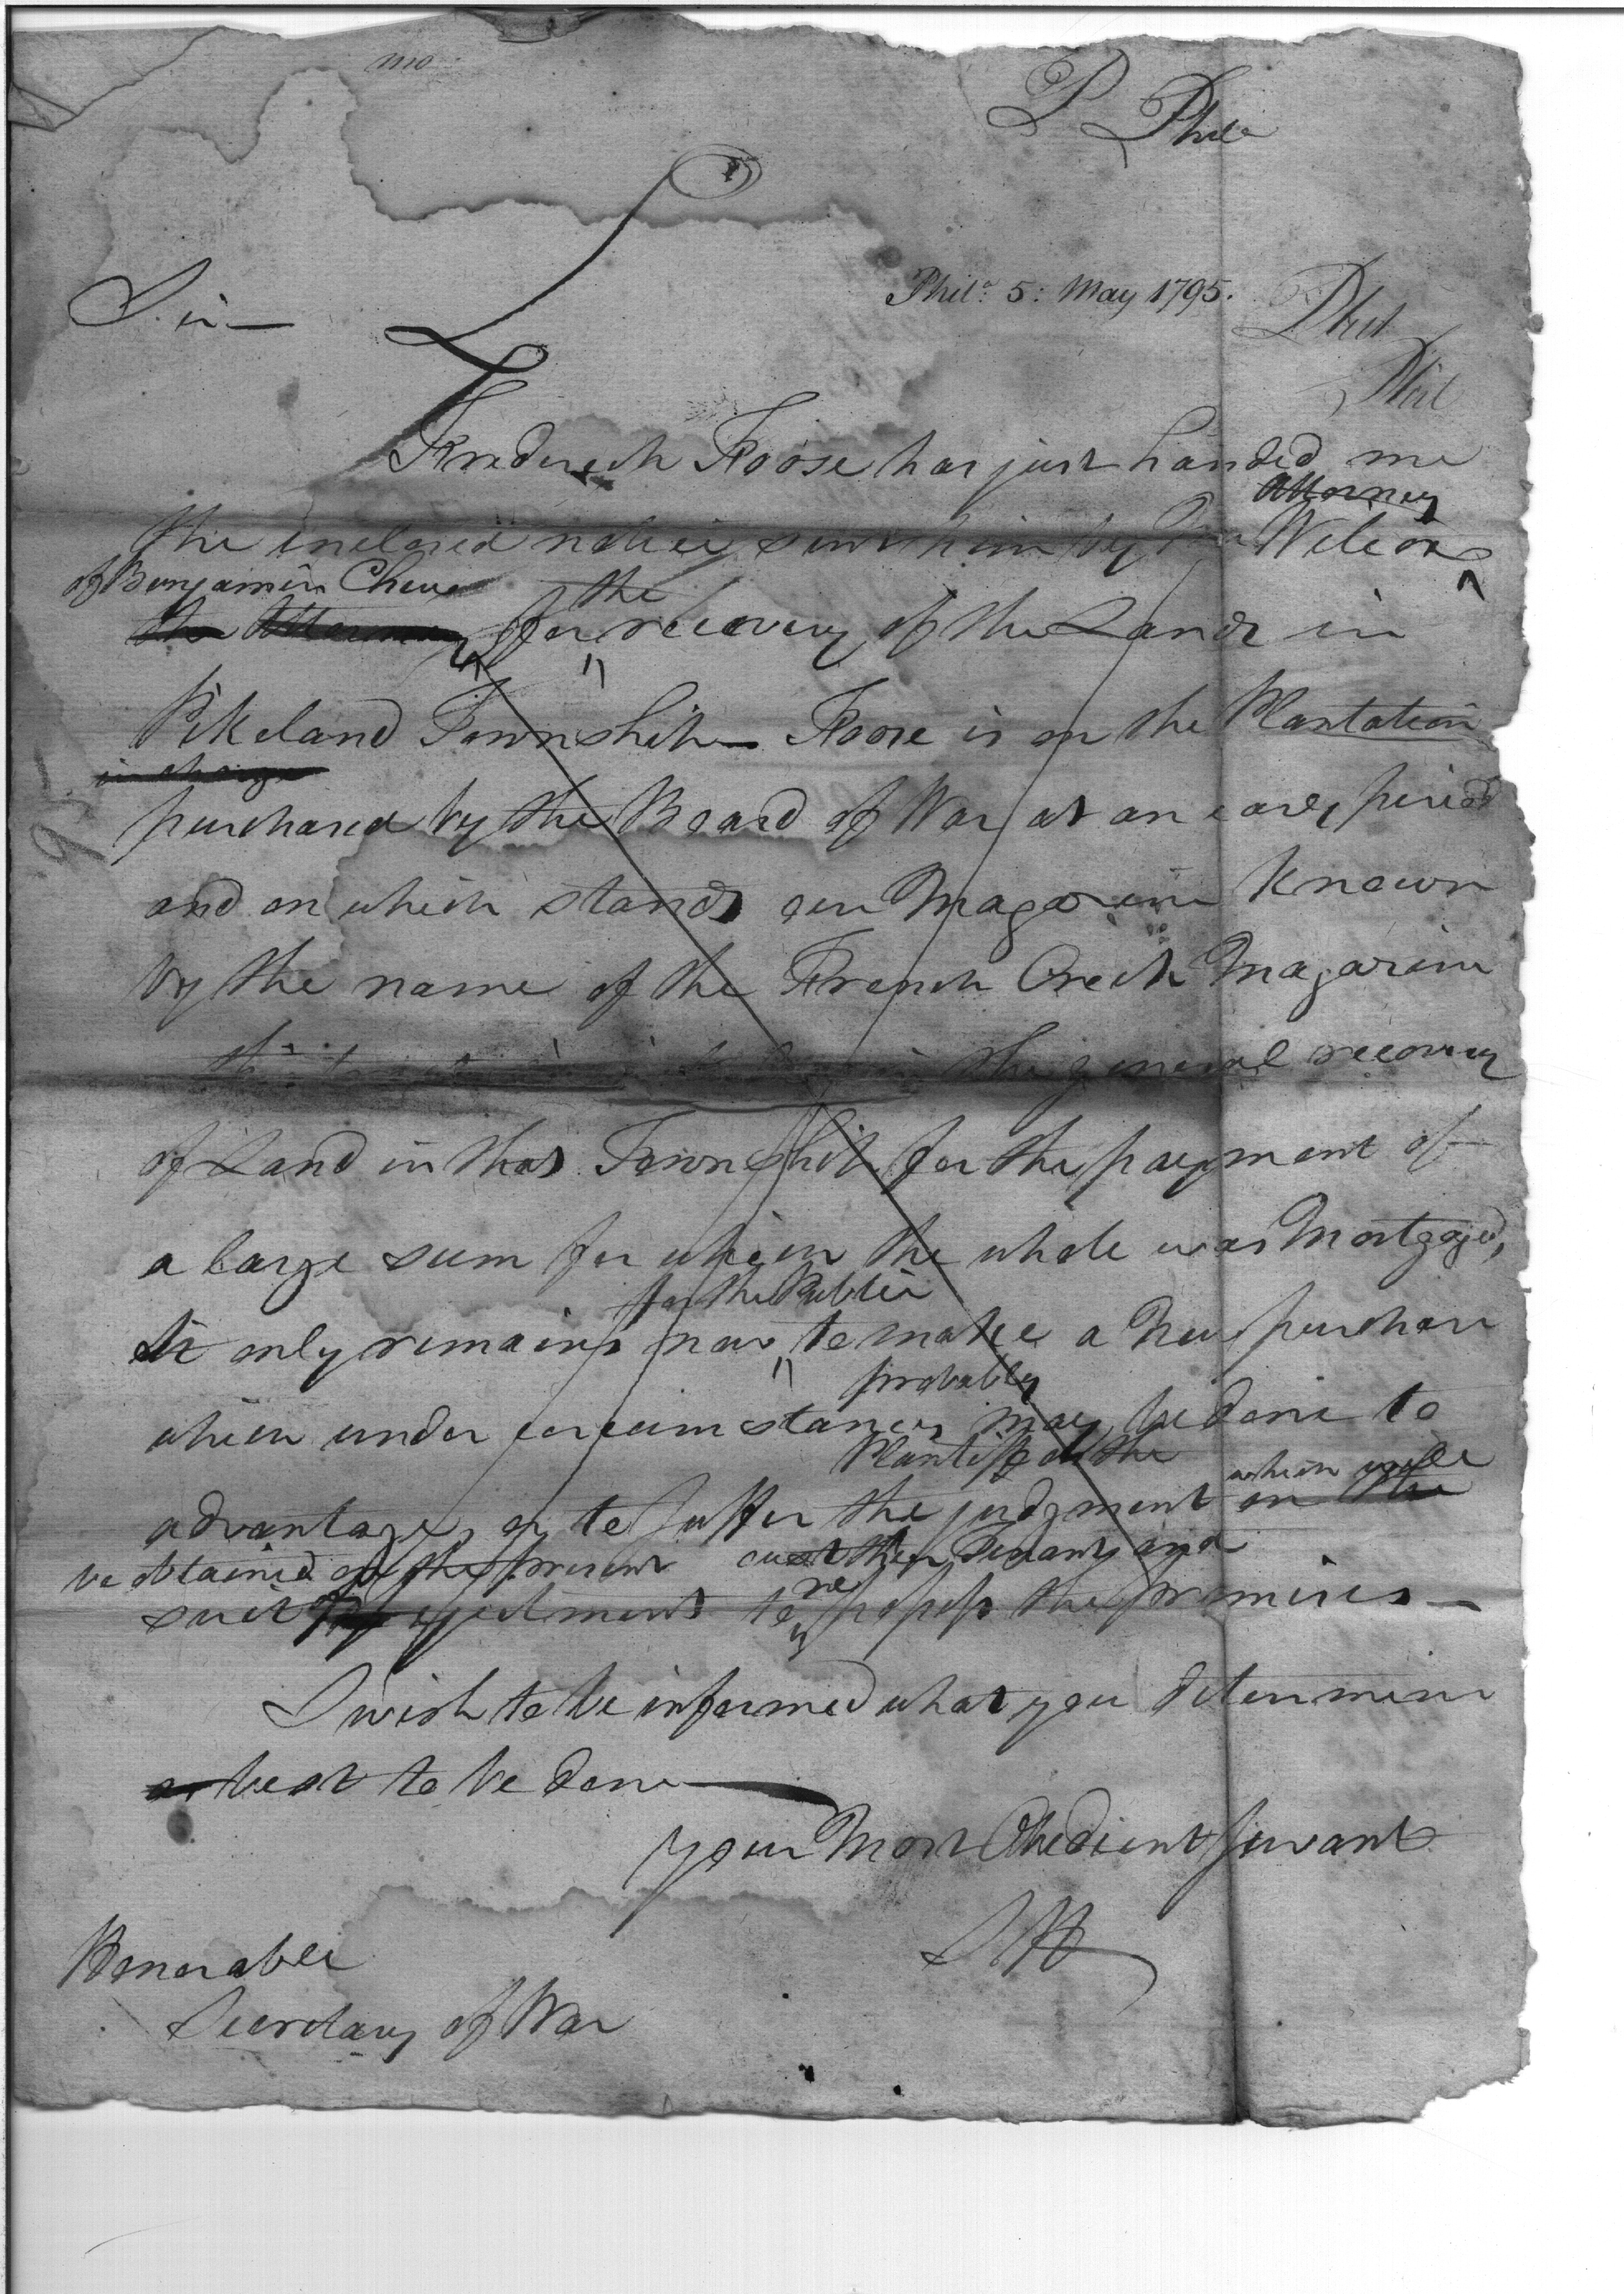 mo
P Phila
Phila. 5: May 1795.
Sir
Phil
Phil
Frederick Foose has just handed me
Attorney
the inclosed notice sent him by Wilcox
of Benjamin Chew
the
the Attorney for recovery of the Lands in
Pikeland Township Foose is on the Plantation
in charge
purchased by the Board of War at an early period
and on which stands our Magazine known
by the name of the French Creek Magazine
the general recovery
of Land in that Township for the payment of
a large sum for which the whole was Mortgaged,
for the Public
It only remains now to make a New purchase
probably
which under circumstances may be done to
Plantiff the
which will
advantage, or to suffer the judgment on the
be obtained present oust their Tenant, and
re
suit ejectment to possess the premises
I wish to be informed what you determine
as best to be done
Your Most Obedient Servant
SH
Honorable
Secretary of War
95